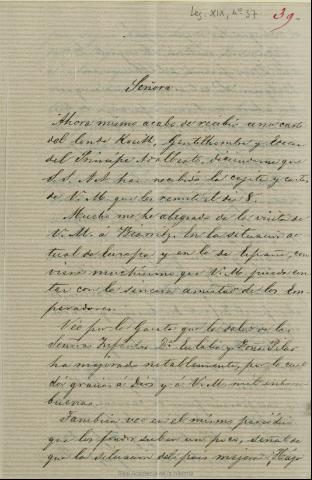 Leg. XIX, nº 37
39.
Señora.
Ahora mismo acabo de recibir una carta
del Conde Gentilhombre y
del Principe Adalberto, diciendome que
S.S. A.A. han recibido la cajita y carta
de V. M. que les remití el dia 8.
Mucho me he alegrado de la visita de
V. M. á Biarritz. En la situacion ac
tual de Europa y en la de España, con
viene muchisimo que V. M. pueda con
tar con la sincera amistad de los Em
peradores.
Veo por la Gaceta que la salud de las
Señoras Infantas Dª Eulalia y Doña Pilar
ha mejorado notablemente, por lo cual
doy gracias á Dios y á V. M. mil enhora
buenas.
Tambien veo en el mismo periódico
que los fondos suben un poco, señal de
que la situacion del pais mejora.
Real Academia de la Historia